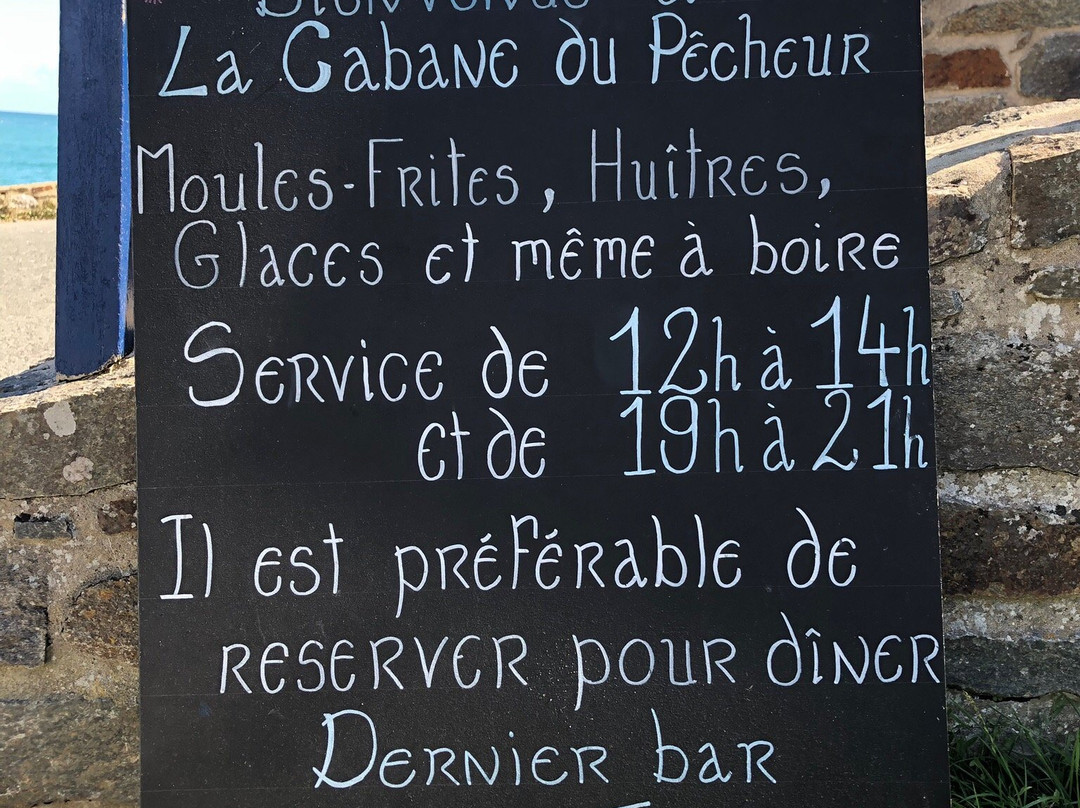 Bienvenue à
La Cabane du Pêcheur
Moules-Frites, Huîtres,
Glaces et même à boire
Service de 12h à 14h
et de 19h à 21h
Il est préférable de
reserver pour dîner
Dernier bar